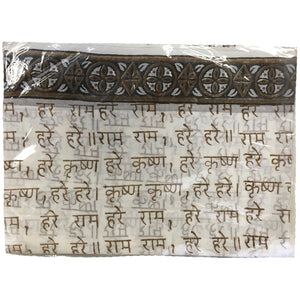 राम, हरे राम, हरे राम हरे
हरे॥ राम राम, हरे हरे॥ राम
कृष्ण, हरे कृष्ण, हरे कृष्ण
कृष्ण, हरे हरे॥ कृष्ण कृष्ण, हरे
हरे राम हरे राम, हरे राम
हरे॥ राम राम, हरे हरे॥